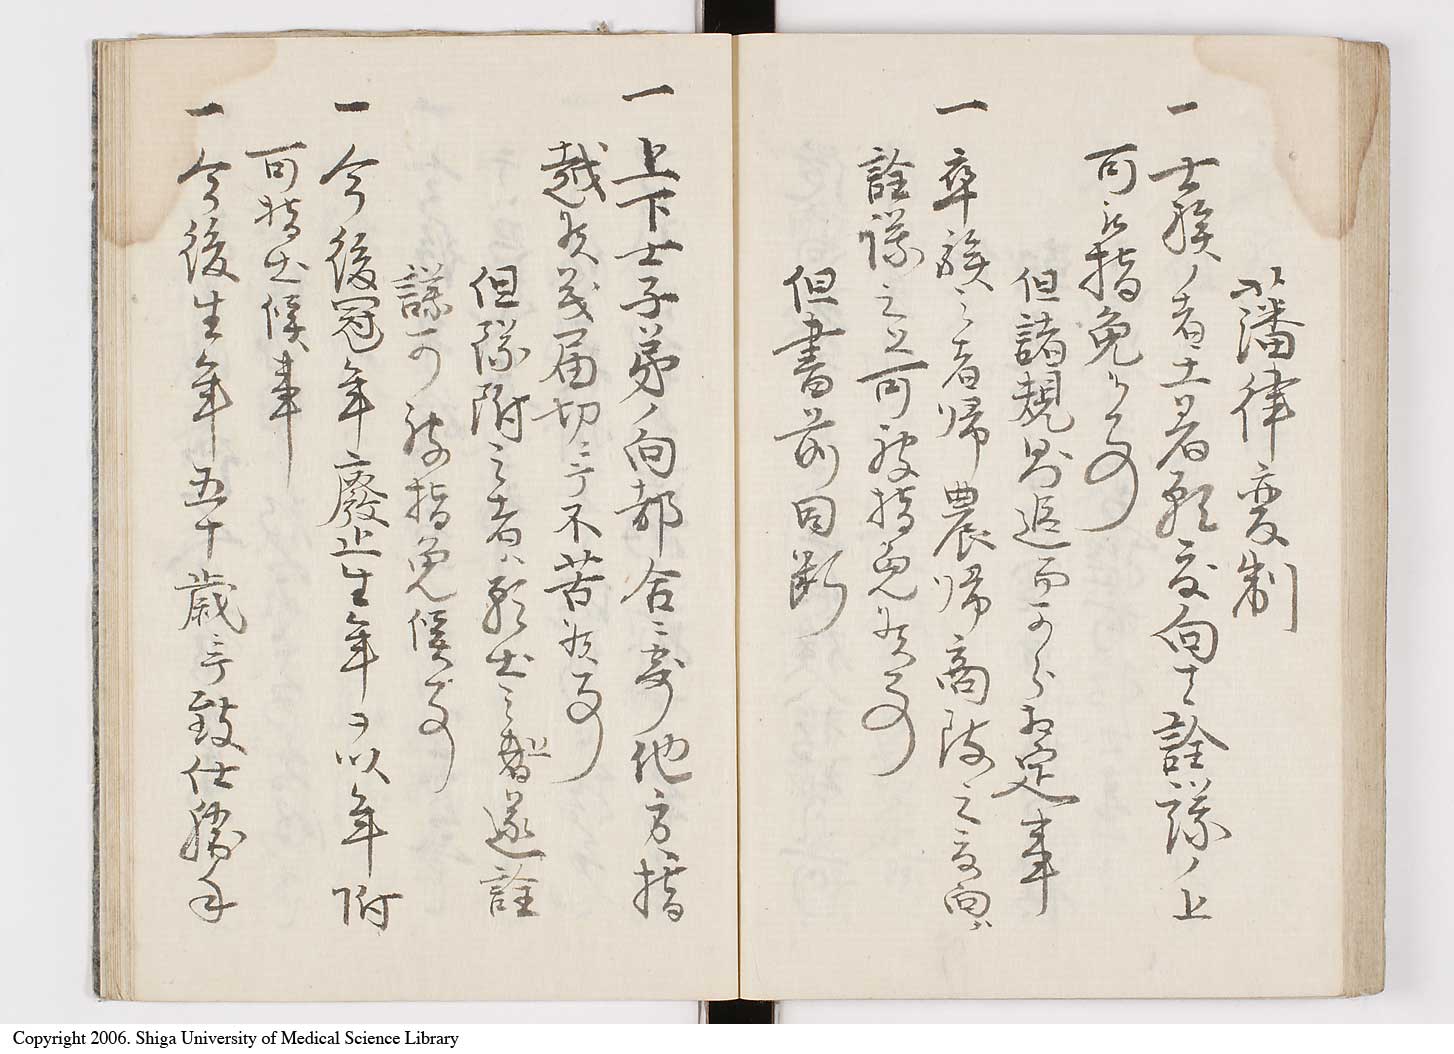 藩律変制
一士族ノ者土着願度向ハ詮議ノ上
可被指免候事
但諸規則追而可被相定事
一卒族之者帰農帰商致之度向ハ
詮議之上可被指免候事
但書前同断
一上下士子弟ノ向都合ニ寄他方ヘ指
越候義届切ニ〆不苦候事
但隊附之者ハ願出之上遂詮
議可被指免候事
一今後冠年廃止生年ヲ以年附
可指出候事
一今後生年五十歳ニ〆致仕勝手
Copyright 2006. Shiga University of Medical Science Library